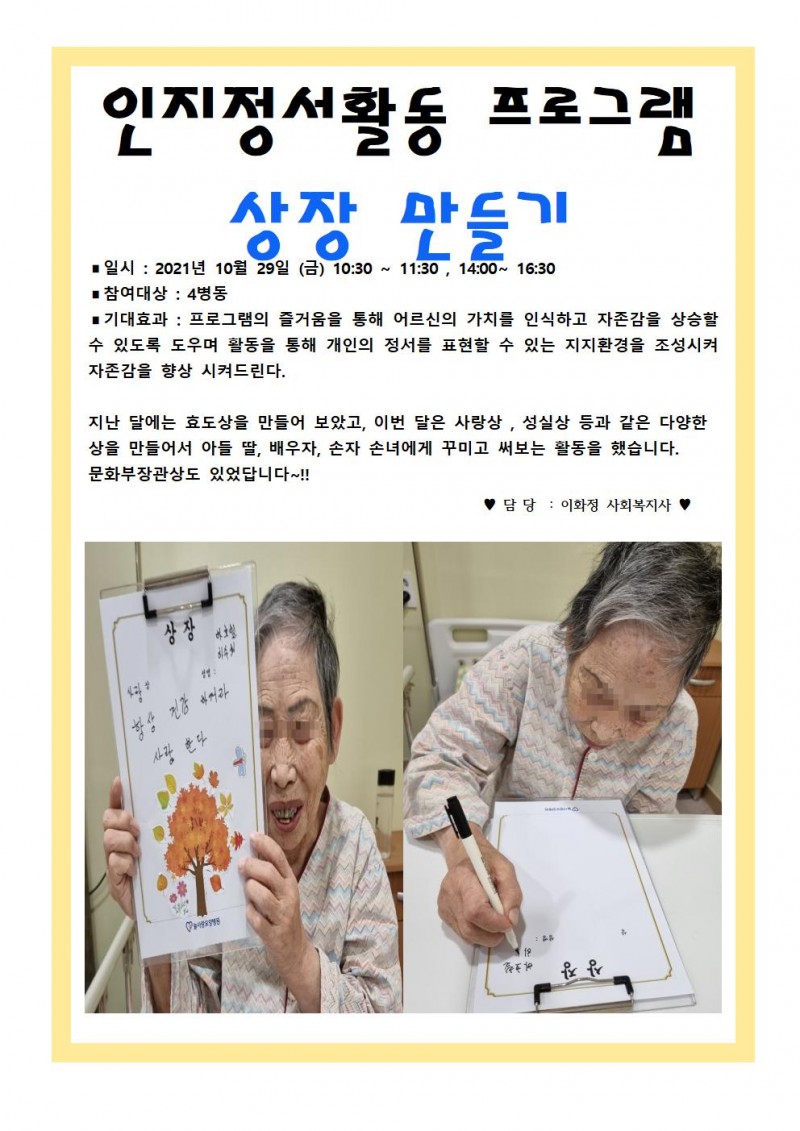 인지정서활동 프로그램
상장 만들기
■일시 : 2021년 10월 29일 (금) 10:30 ~ 11:30 , 14:00~ 16:30
■참여대상 : 4병동
■기대효과 : 프로그램의 즐거움을 통해 어르신의 가치를 인식하고 자존감을 상승할
수 있도록 도우며 활동을 통해 개인의 정서를 표현할 수 있는 지지환경을 조성시켜
자존감을 향상 시켜드린다.
지난 달에는 효도상을 만들어 보았고, 이번 달은 사랑상 , 성실상 등과 같은 다양한
상을 만들어서 아들 딸, 배우자, 손자 손녀에게 꾸미고 써보는 활동을 했습니다.
문화부장관상도 있었답니다~!!
♥ 담 당 : 이화정 사회복지사 ♥
상 장
성명 :
항상 건강 하거라
사랑 한다
상 장
성명 :
상